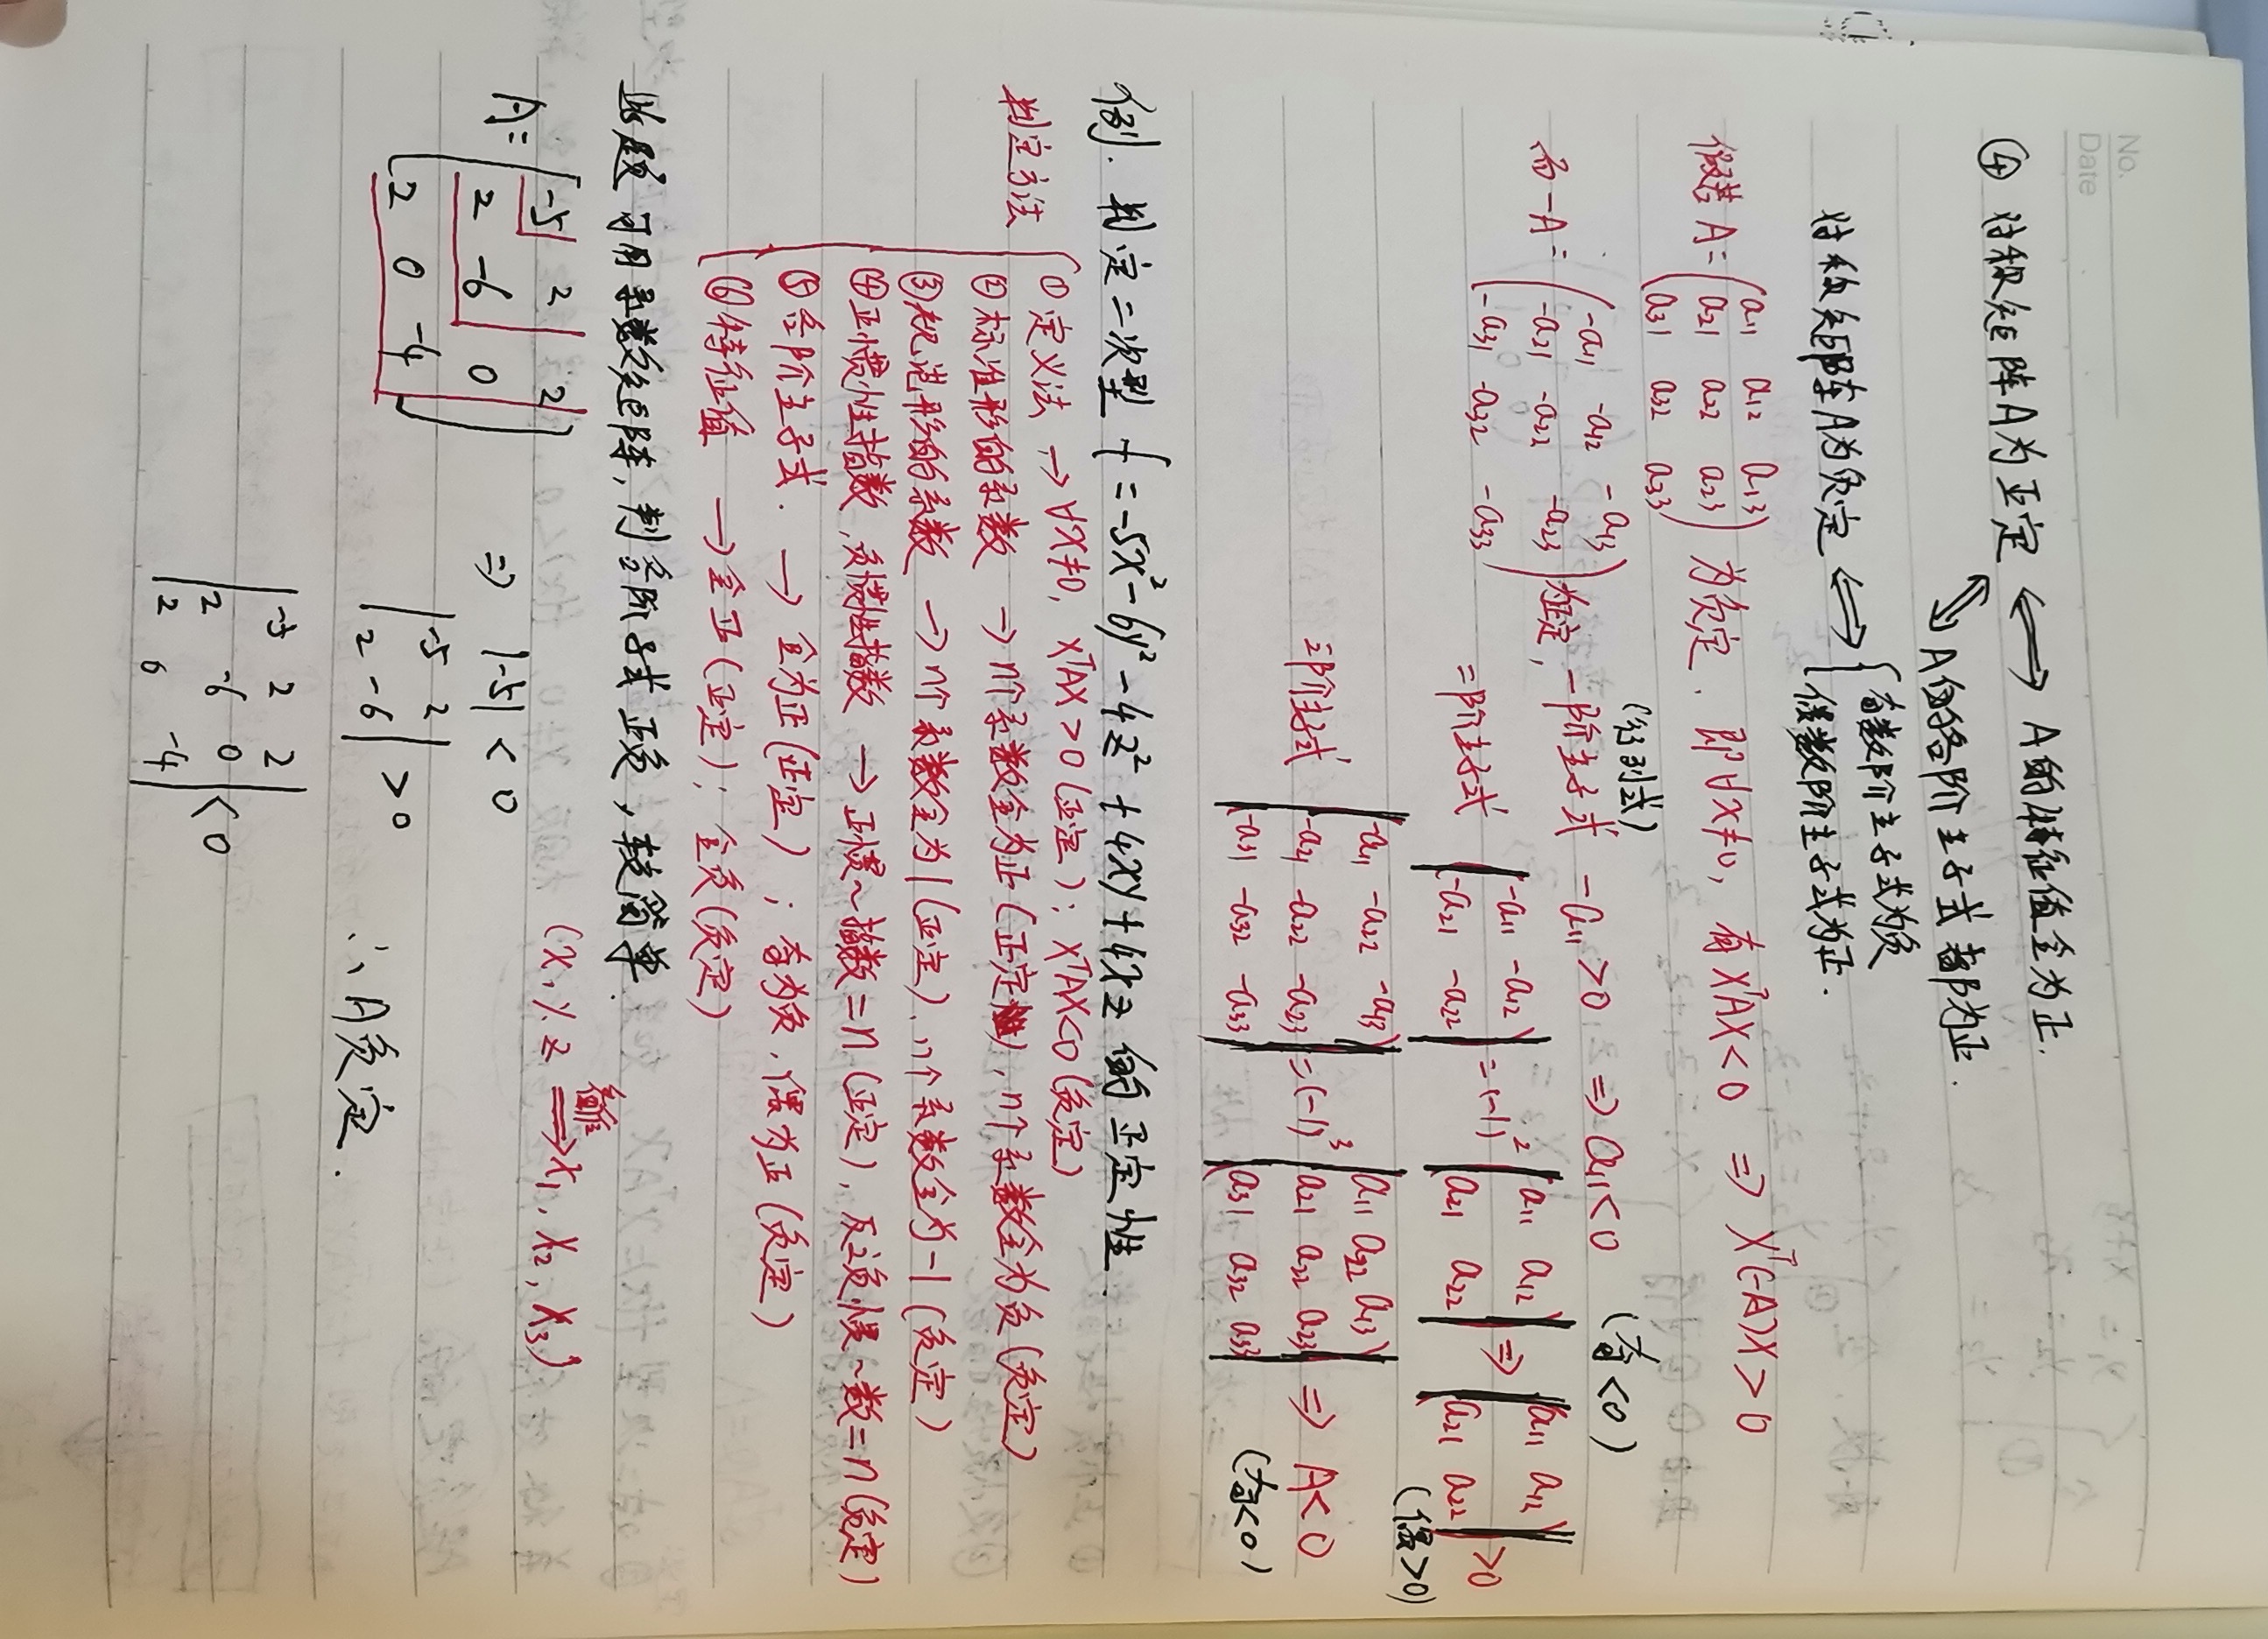 No.
Date
④ 对称矩阵A为正定 ⟺ A的特征值全为正.
⟺ A的各阶主子式都为正.
对称矩阵A为负定 ⟺ { 奇数阶主子式为负
偶数阶主子式为正.
假若 A = ( a11 a12 a13
a21 a22 a23
a31 a32 a33 ) 为负定. 即∀x≠0, 有XᵀAX<0 ⇒ Xᵀ(-A)X>0
(行列式)
而 -A = ( -a11 -a12 -a13
-a21 -a22 -a23
-a31 -a32 -a33 ) 为正定, 一阶主子式 -a11>0 ⇒ a11<0 (奇<0)
二阶主子式 | -a11 -a12
-a21 -a22 | = (-1)² | a11 a12
a21 a22 | ⇒ | a11 a12
a21 a22 | >0
(偶>0)
三阶主子式 | -a11 -a22 -a13
-a21 -a22 -a23
-a31 -a32 -a33 | = (-1)³ | a11 a22 a13
a21 a22 a23
a31 a32 a33 | ⇒ A<0
(奇<0)
例. 判定二次型 f = -5x² - 6y² - 4z² + 4xy + 4xz 的正定性.
判定方法 { ① 定义法 → ∀x≠0, XᵀAX>0 (正定); XᵀAX<0 (负定)
② 标准形的系数 → n个系数全为正 (正定), n个系数全为负 (负定)
③ 规范形的系数 → n个系数全为1 (正定), n个系数全为-1 (负定)
④ 正惯性指数, 负惯性指数 → 正惯~指数=n (正定), 反之负惯~数=n (负定)
⑤ 各阶主子式. → 全为正 (正定); 奇为负, 偶为正 (负定)
⑥ 特征值 → 全正 (正定); 全负 (负定)
此题可用系数矩阵, 判各阶子式正负, 较简单.
(x, y, z ⇒ x1, x2, x3)
A = [ -5 2 2
2 -6 0
2 0 -4 ]
⇒ |-5| < 0
| -5 2
2 -6 | > 0
∴ A负定.
| -5 2 2
2 -6 0
2 0 -4 | < 0